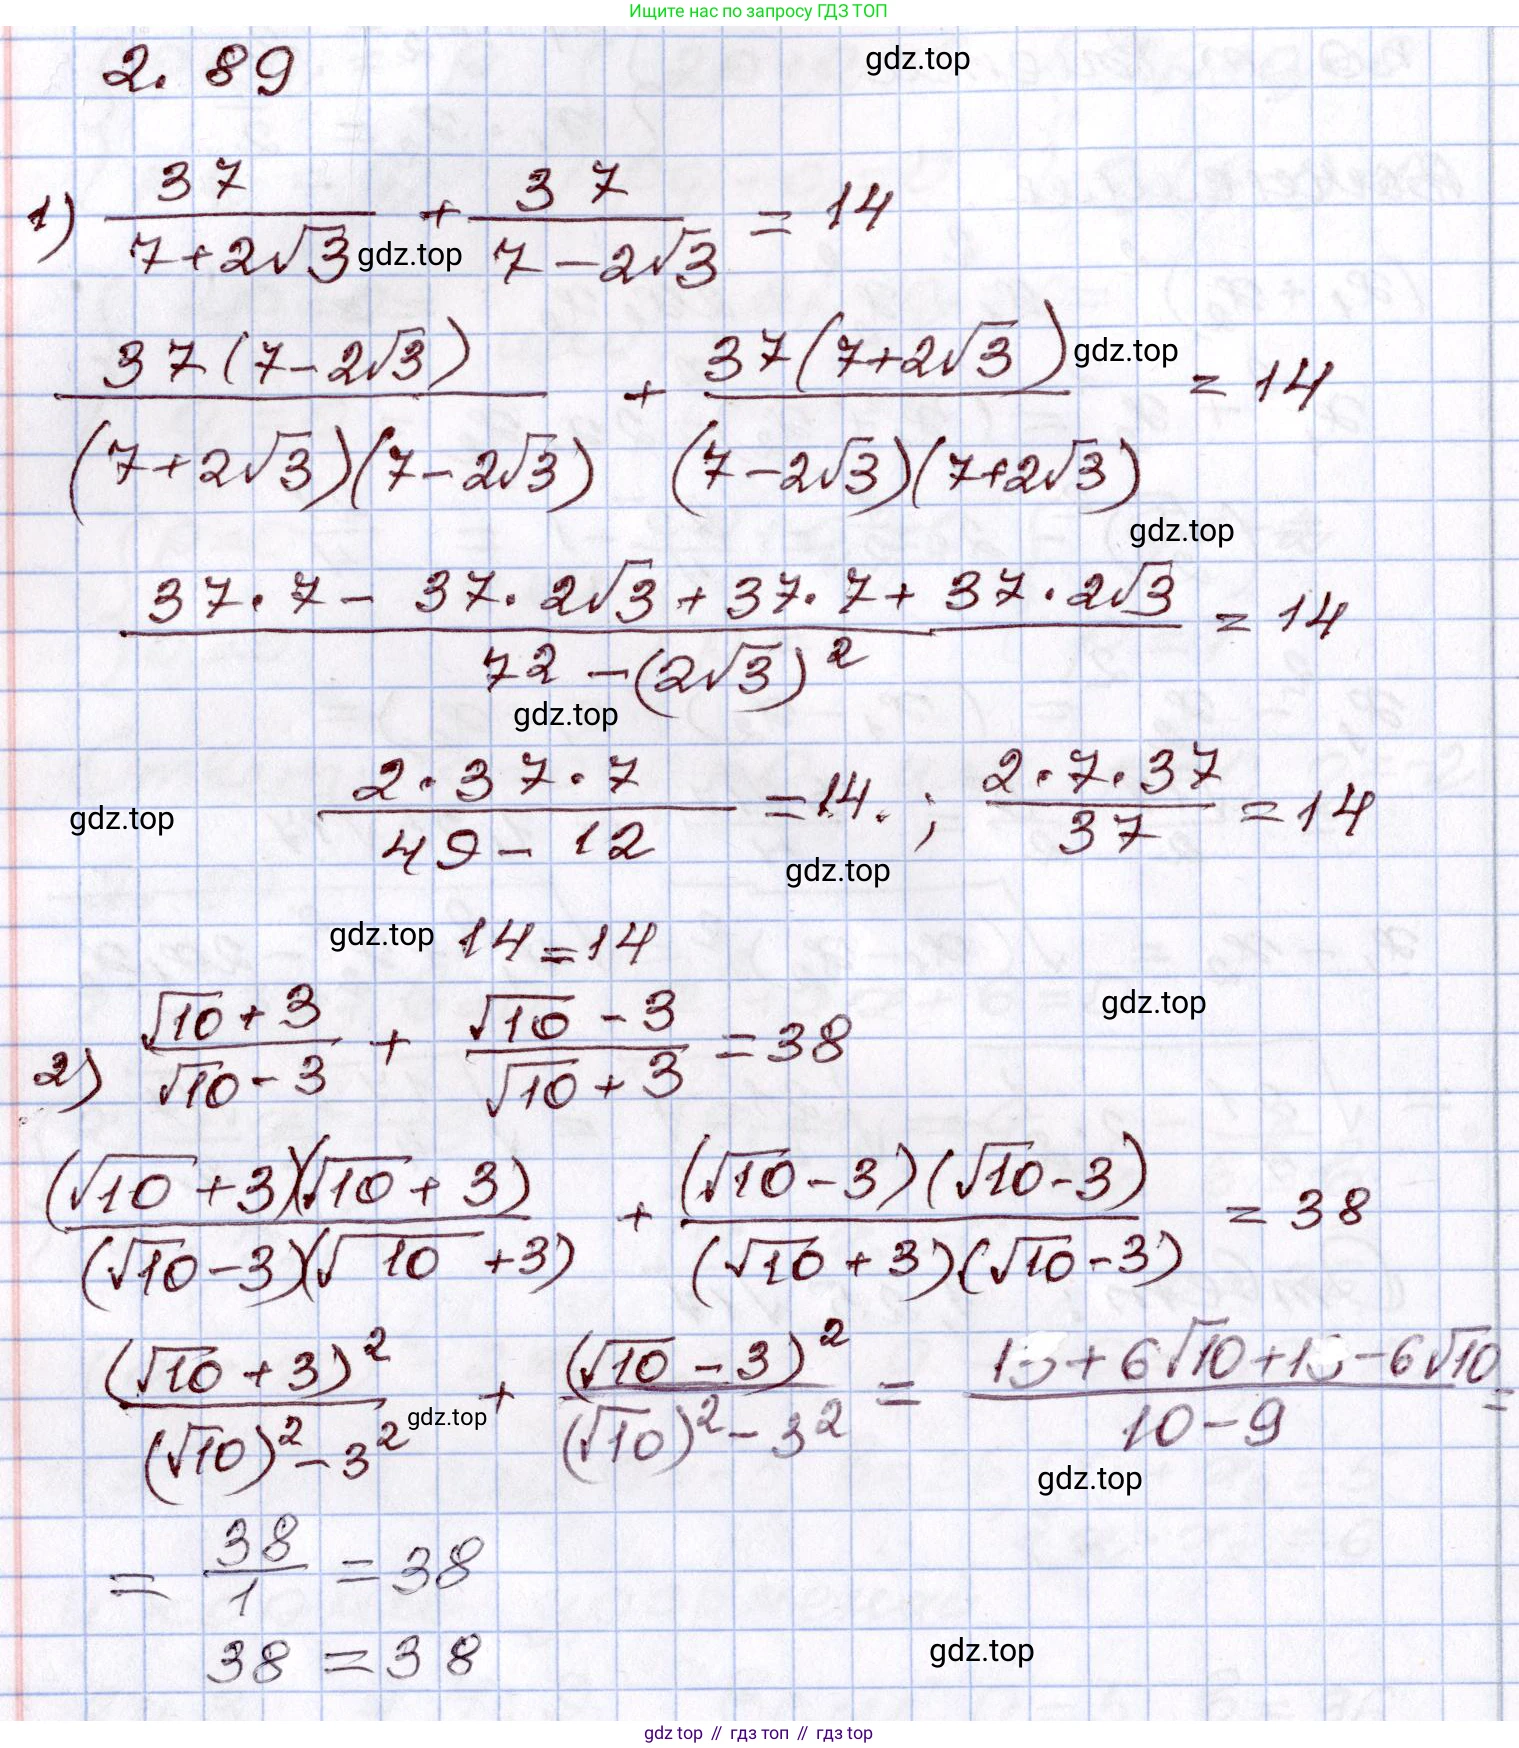 Ищите нас по запросу ГДЗ ТОП
2. 89
gdz.top
1) 37/(7+2√3) + 37/(7-2√3) = 14
gdz.top
37(7-2√3)/((7+2√3)(7-2√3)) + 37(7+2√3)/((7-2√3)(7+2√3)) = 14
gdz.top
gdz.top
(37·7 - 37·2√3 + 37·7 + 37·2√3)/(7² - (2√3)²) = 14
gdz.top
(2·37·7)/(49-12) = 14. ; (2·7·37)/37 = 14
gdz.top
gdz.top
gdz.top
14=14
gdz.top
2) (√10+3)/(√10-3) + (√10-3)/(√10+3) = 38
((√10+3)(√10+3))/((√10-3)(√10+3)) + ((√10-3)(√10-3))/((√10+3)(√10-3)) = 38
(√10+3)²/((√10)²-3²) + (√10-3)²/((√10)²-3²) = (+6√10+ -6√10)/(10-9) =
gdz.top
gdz.top
= 38/1 = 38
38 = 38
gdz.top
gdz top // гдз топ // гдз top